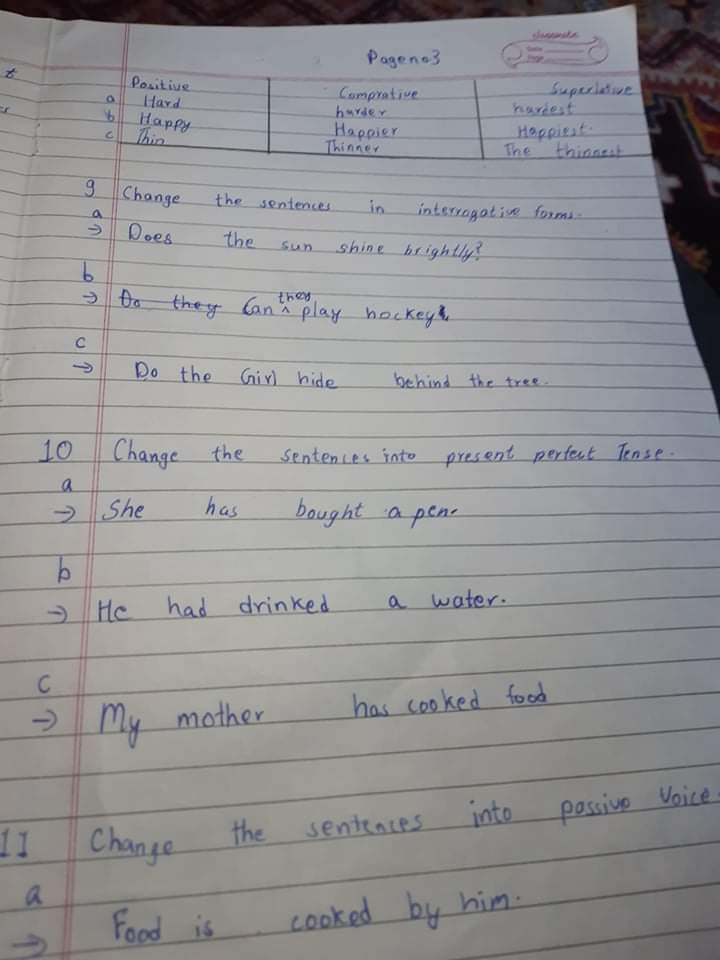 classmate
Date
Page
Pageno3
Positive Comprative Superlative
a Hard harder hardest
b Happy Happier Happiest.
c Thin Thinner The thinnest
9 Change the sentences in interrogative forms.
a
→ Does the sun shine brightly?
b
→ Do they Can they play hockey
c
→ Do the Girl hide behind the tree.
10 Change the sentences into present perfect Tense.
a
→ She has bought a pen.
b
→ He had drinked a water.
c
→ My mother has cooked food
11 Change the sentences into passive Voice.
a
→ Food is cooked by him.